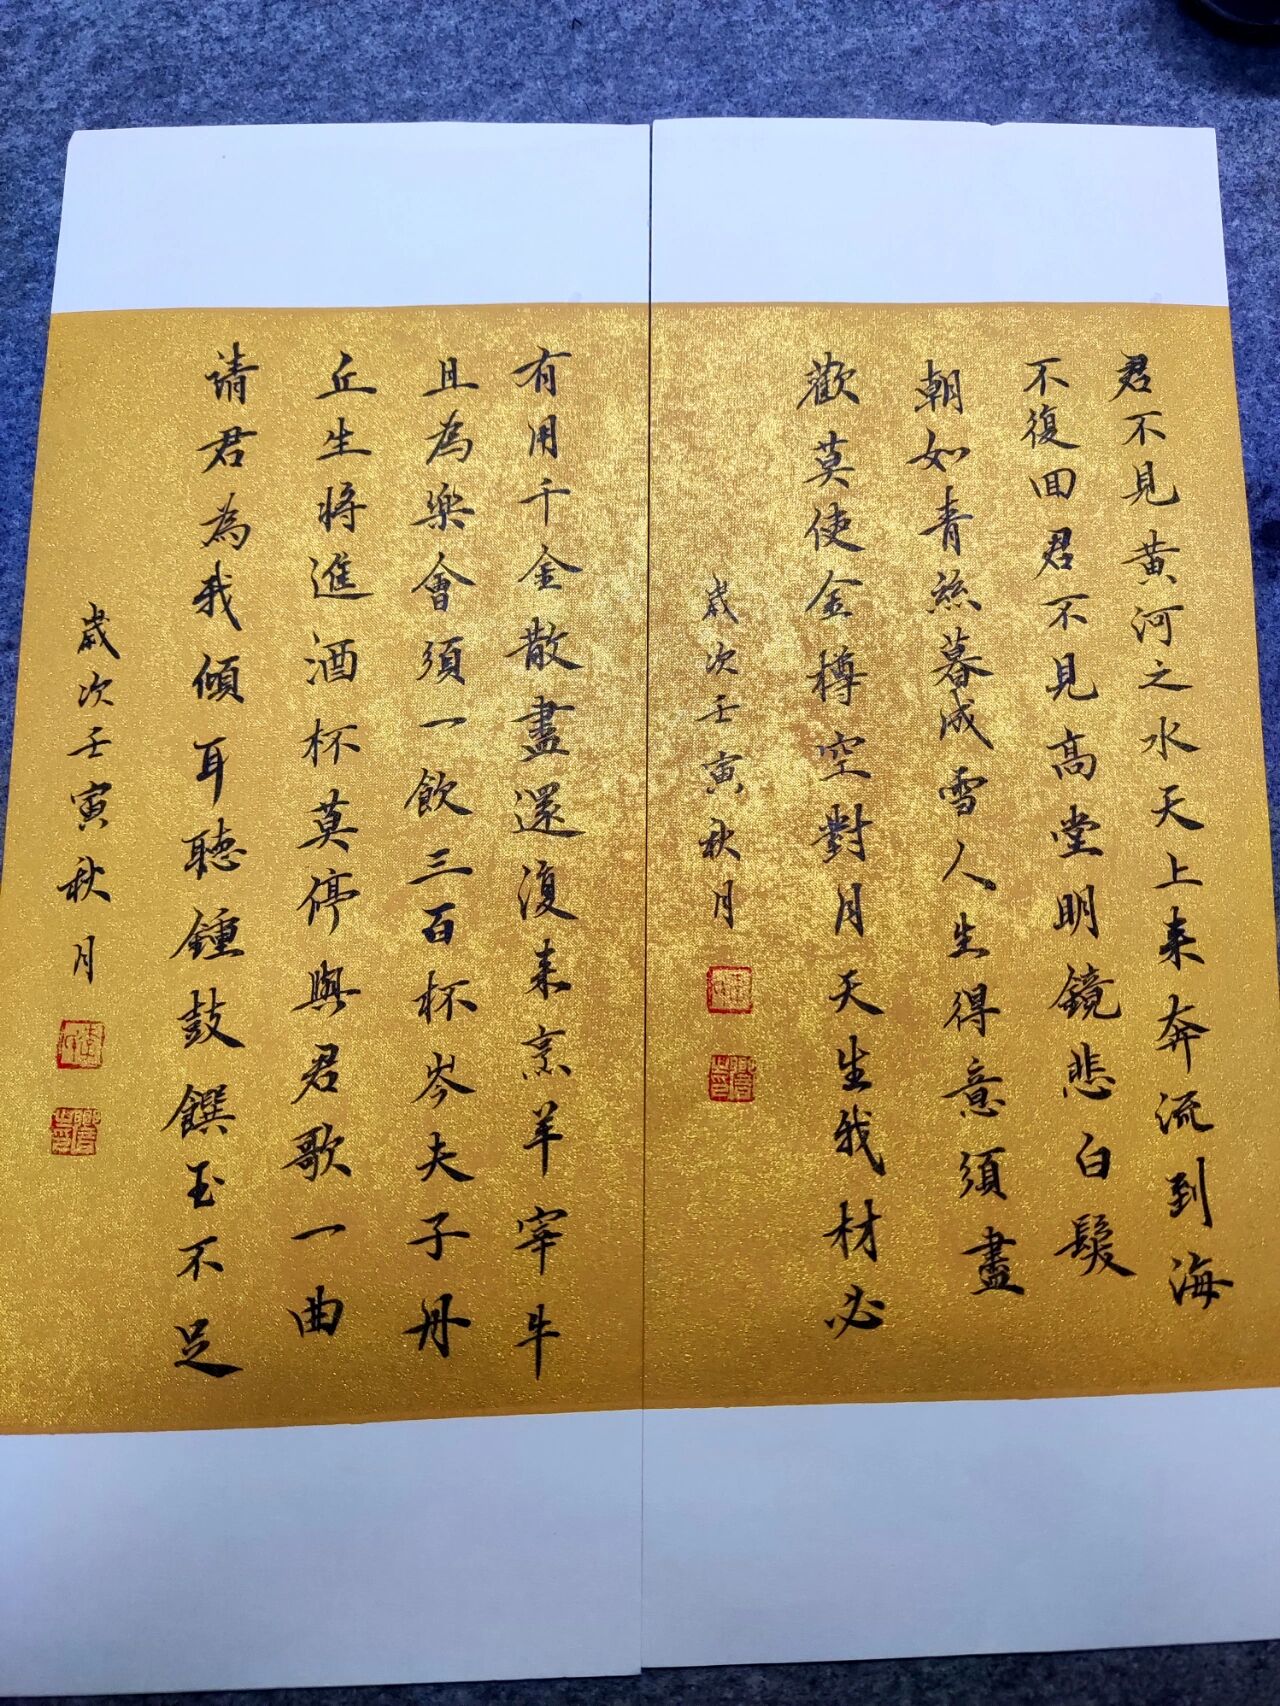 君不見黄河之水天上来奔流到海
不復回君不見高堂明鏡悲白髮
朝如青絲暮成雪人生得意須盡
歡莫使金樽空對月天生我材必
歲次壬寅秋月
有用千金散盡還復来烹羊宰牛
且為樂會須一飲三百杯岑夫子丹
丘生將進酒杯莫停與君歌一曲
请君為我傾耳聽鍾鼓饌玉不足
歲次壬寅秋月